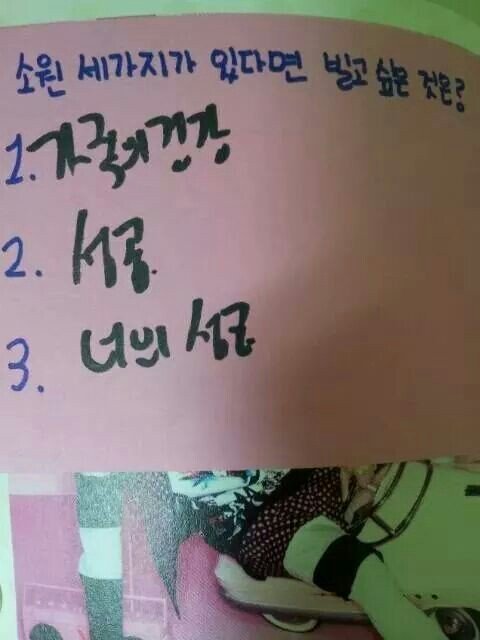 소원 세가지가 있다면 빌고 싶은 것은?
1. 가족의 건강
2. 성공
3. 너의 성공